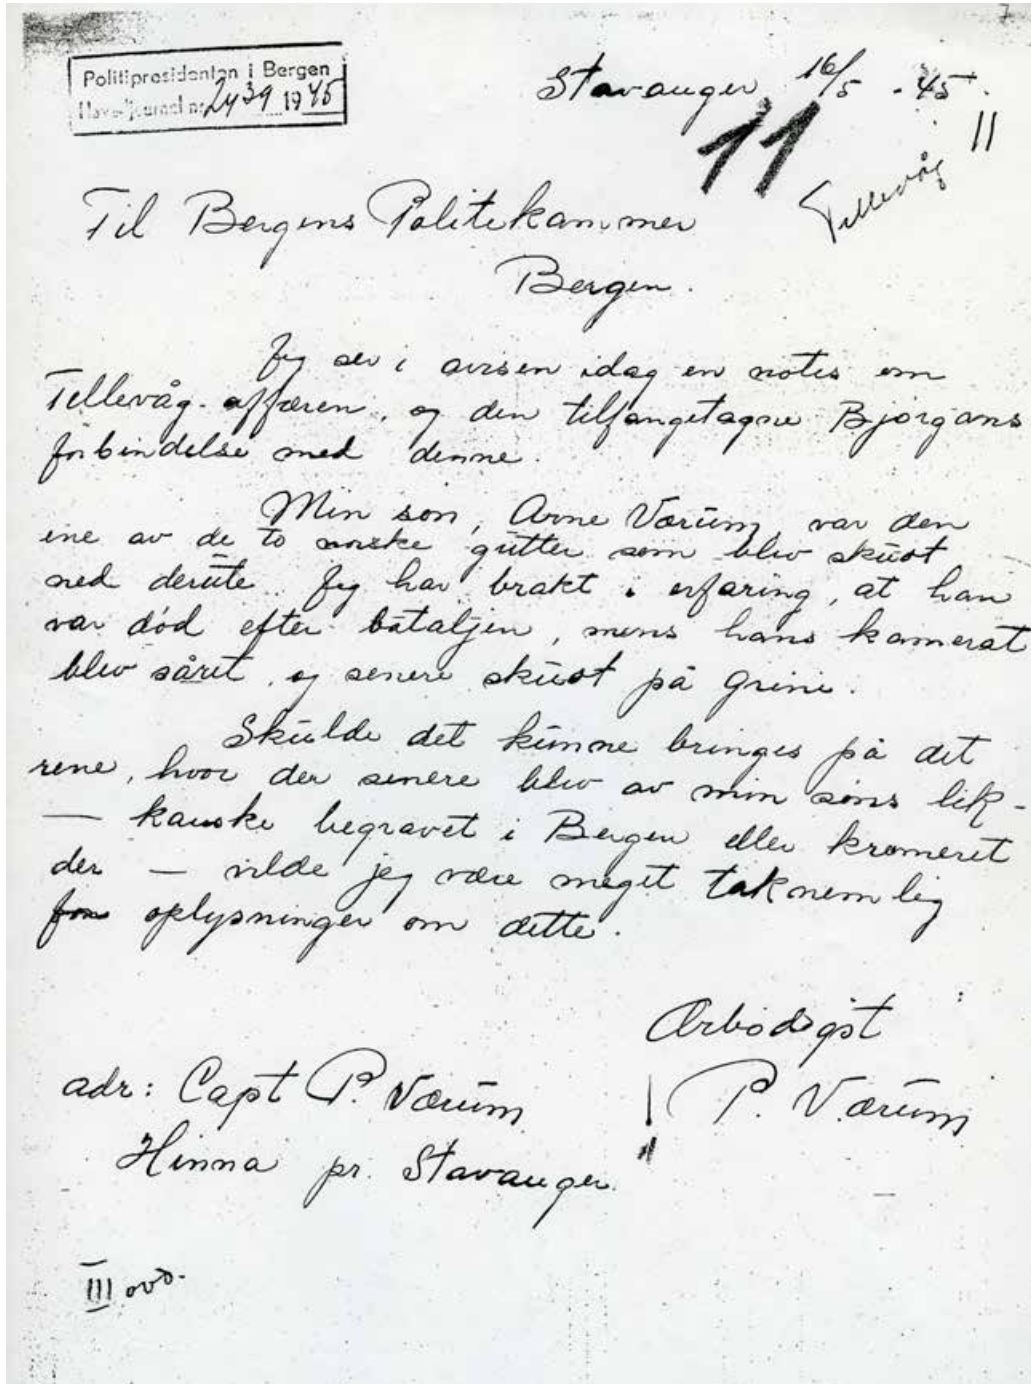 7
Politipresidenten i Bergen
Hovedjournal nr. 2439 1945
Stavanger 16/5 - 45.
11
11
Tellevåg
Til Bergens Politikammer
Bergen.
Jeg ser i avisen idag en notis om
Tellevåg-affæren, og den tilfangetagne Bjørgans
forbindelse med denne.
Min søn, Arne Værum, var den
ene av de to norske gutter som blev skutt
ned derute. Jeg har brakt i erfaring, at han
var død efter bataljen, mens hans kamerat
blev såret, og senere skutt på Grini.
Skulde det kunne bringes på det
rene, hvor der senere blev av min søns lik -
— kanske begravet i Bergen eller kremeret
der — vilde jeg være meget taknemlig
for oplysninger om dette.
Ærbødigst
adr: Capt P. Værum
P. Værum
Hinna pr. Stavanger.
III ovd.